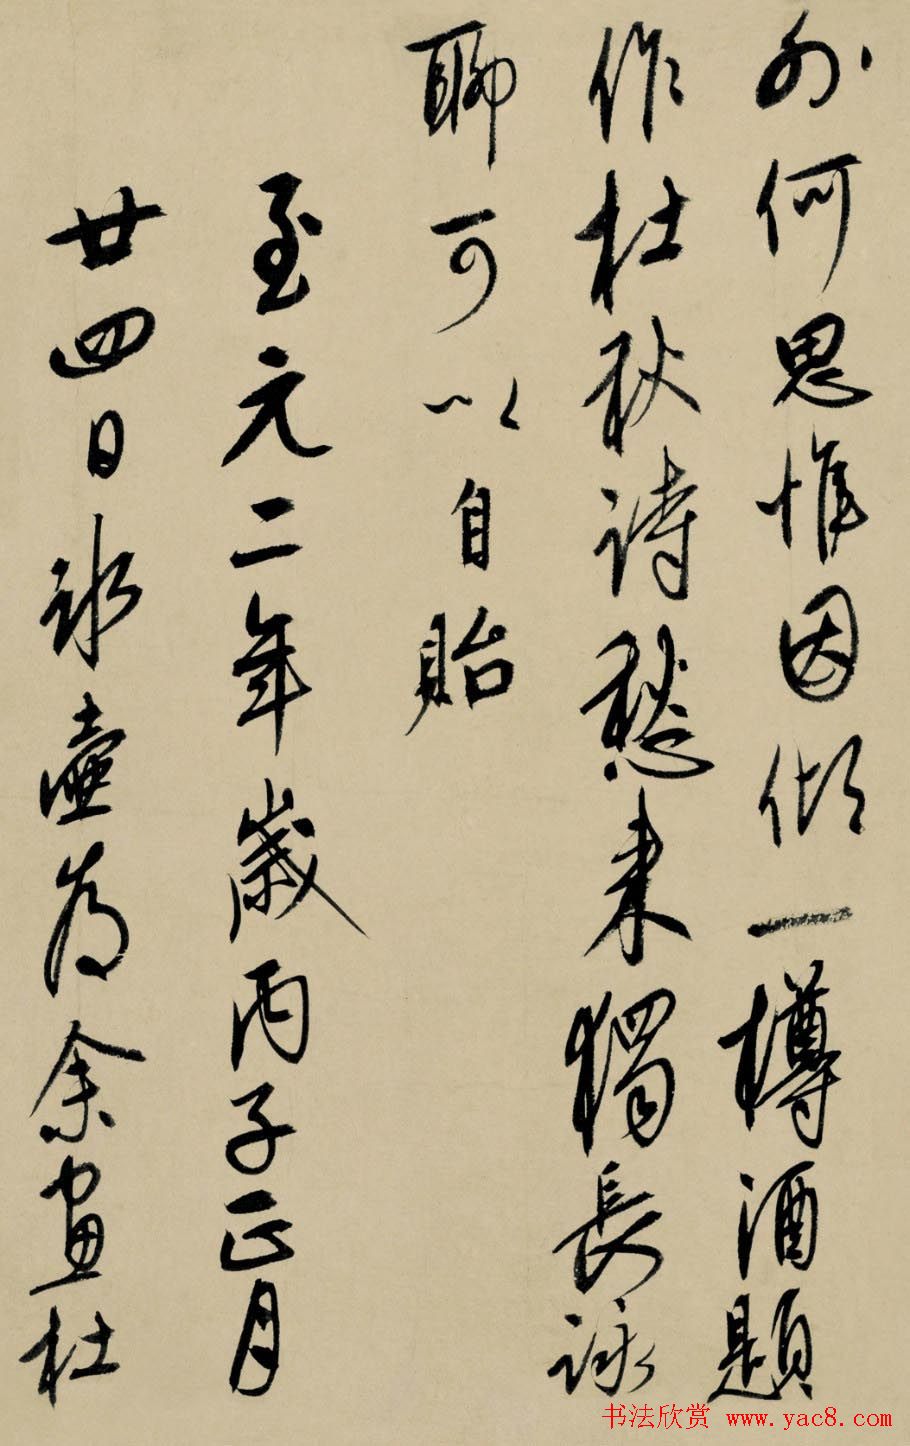 外何思惟因傾一樽酒題
作杜秋詩愁来獨長詠
聊可以自貽
至元二年歲丙子正月
廿四日冰壺為余畫杜
书法欣赏 www.yac8.com